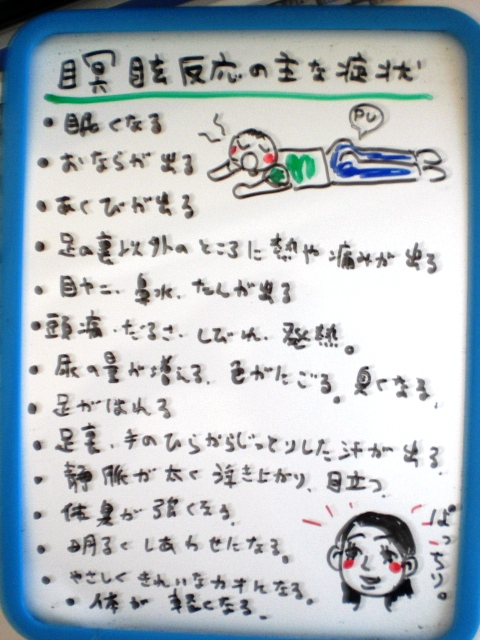 瞑眩反応の主な症状
・眠くなる
・おならが出る
PU
・あくびが出る
・足の裏以外のところに熱や痛みが出る
・目ヤニ、鼻水、たんが出る
・頭痛・だるさ・しびれ、発熱。
・尿の量が増える、色がにごる。臭くなる。
・足がはれる
・足裏、手のひらからじっとりした汗が出る
・静脈が太く浮き上がり、目立つ
・体臭が強くなる。
・明るくしあわせになる。
・やさしくきれいなカオんなる。
・体が軽くなる。
ぱっちり。